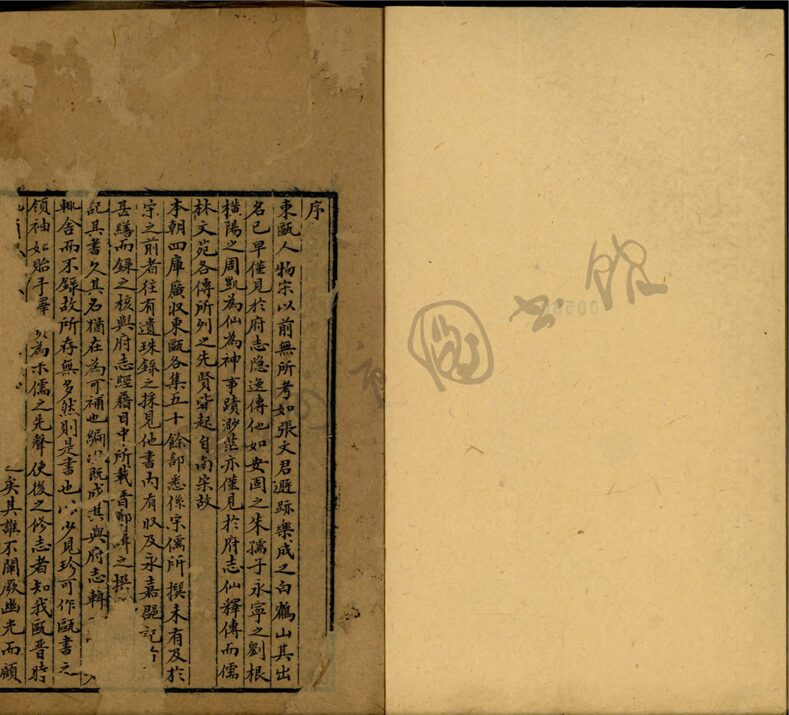 序
東甌人物宗以前無所考如張文君遯跡樂成之白鶴山其出
名已早僅見於府志隐逸傳他如安固之朱孺子永寧之劉根
横陽之周凱為仙為神事蹟渺茫亦僅見於府志仙釋傳而儒
林文苑各傳所列之先賢皆起自南宗故
本朝四庫廣收東甌各集五十餘部悉係宗儒所撰未有及於
宗之前者往有遺珠錄之採見他書内有収及永嘉郡記
甚繕而錄之核與府志經藉目中所載晋鄭緝之撰
記其書久其名猶在為可補也編次既成其與府志
輒舍而不錄故所存無多然則是書也以少見珍可作甌書之
領袖如貽手 以為木儒之先聲使後之修志者知我甌晋時
矣其誰不闡厥幽光而顧
圖書館